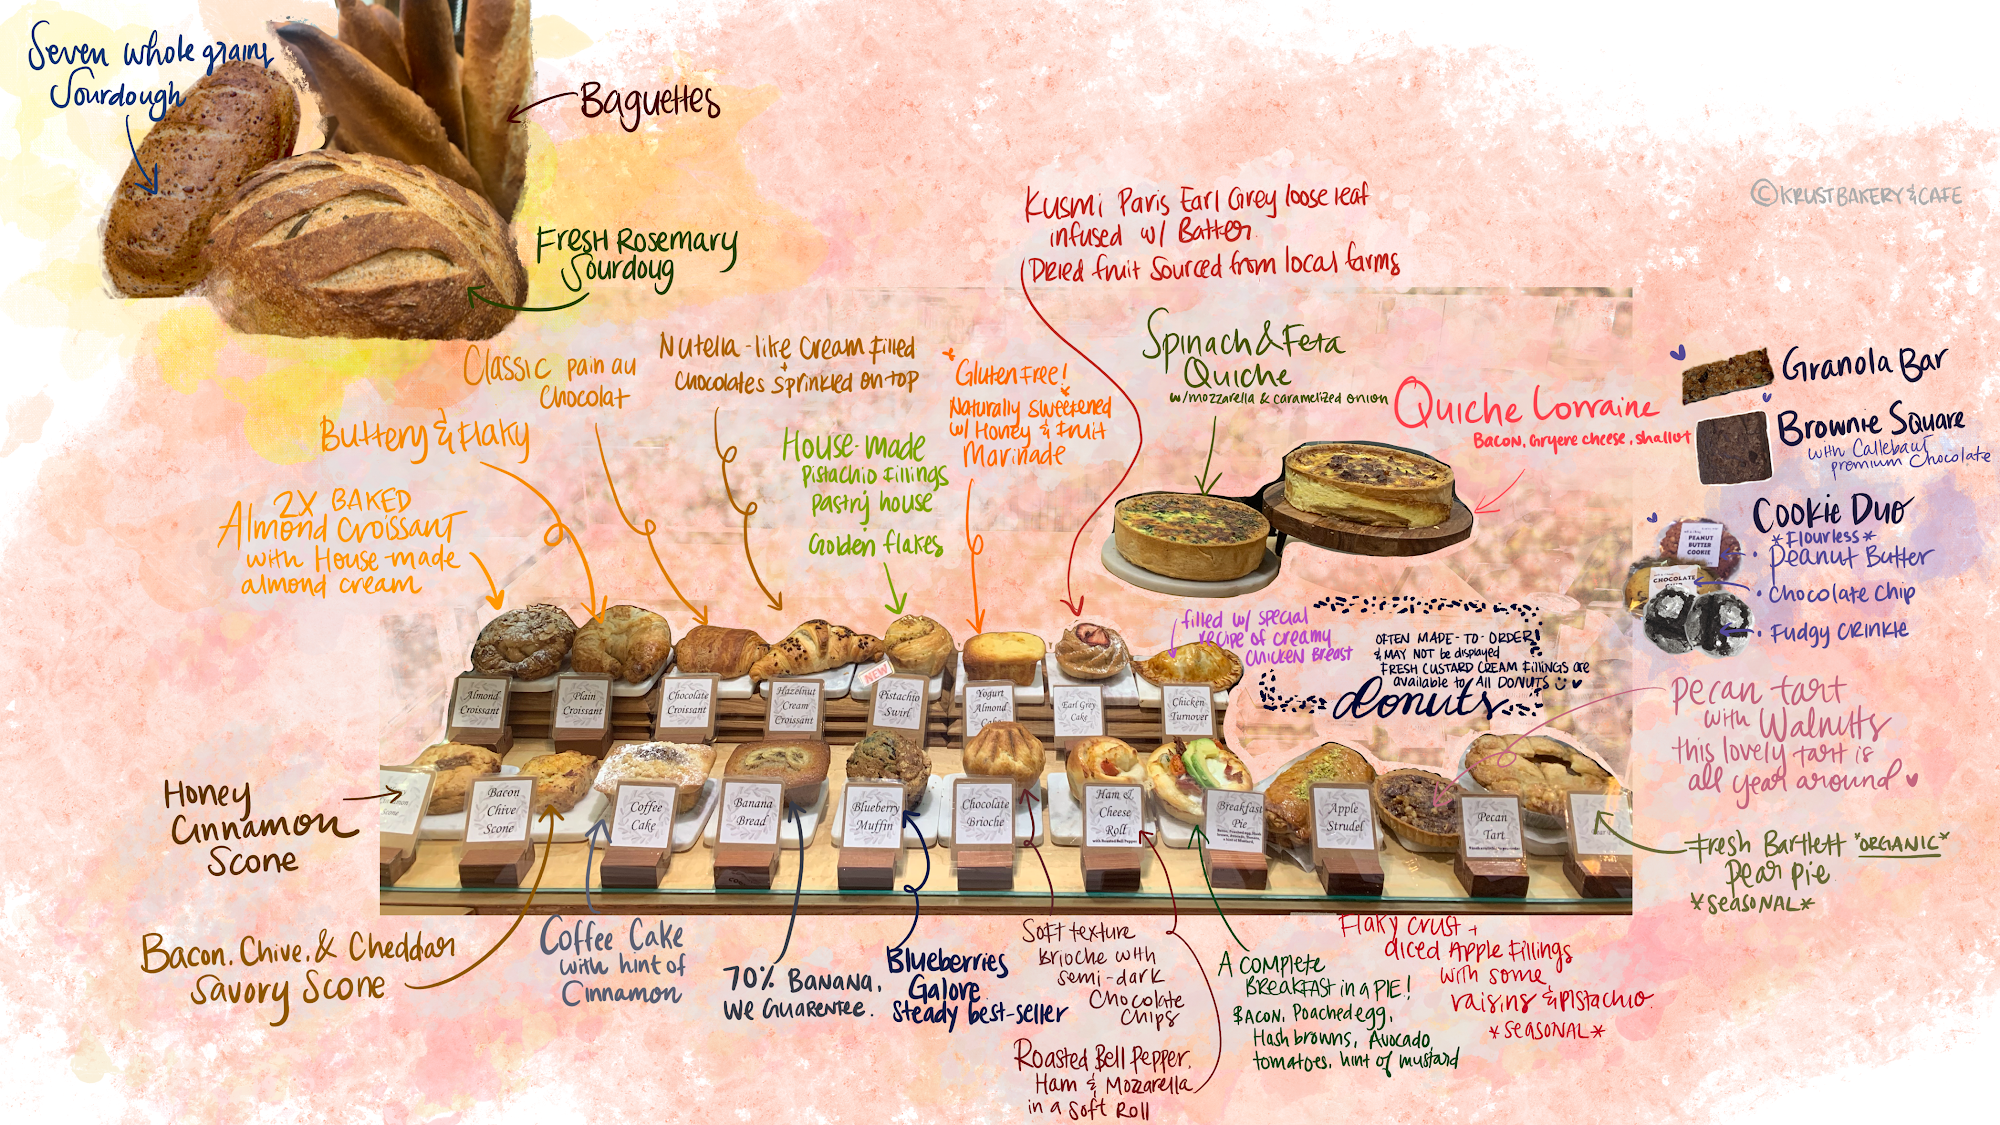 Seven whole grains
Sourdough
Baguettes
FRESH ROSEMARY
Sourdoug
©KRUSTBAKERY&CAFE
Kusmi Paris Earl Grey loose leaf
infused w/ Batter
Dried fruit sourced from local farms
Classic pain au
Chocolat
Nutella-like cream filled
+
Chocolates sprinkled on top
*Gluten Free!*
Naturally sweetened
w/ Honey & Fruit
Marinade
Buttery & Flaky
House-made
Pistachio fillings
pastry house
Golden flakes
2X BAKED
Almond Croissant
with House-made
almond cream
Spinach & Feta
Quiche
w/mozzarella & caramelized onion
Quiche Lorraine
Bacon, Gryere cheese, shallot
Granola Bar
Brownie Square
with Callebaut
premium Chocolate
Cookie Duo
*Flourless*
• Peanut Butter
• Chocolate Chip
• Fudgy CRINKLE
PEANUT
BUTTER
COOKIE
CHOCOLATE
filled w/ special
recipe of creamy
CHICKEN BREAST
OFTEN MADE-TO-ORDER!
& MAY NOT be displayed
FRESH CUSTARD CREAM FILLINGS are
available to All DONUTS
donuts
NEW
Almond
Croissant
Plain
Croissant
Chocolate
Croissant
Hazelnut
Cream
Croissant
Pistachio
Swirl
Yogurt
Almond
Cake
Earl Grey
Cake
Chicken
Turnover
Pecan tart
with Walnuts
this lovely tart is
all year around
Honey
Cinnamon
Scone
Scone
Bacon
Chive
Scone
Coffee
Cake
Banana
Bread
Blueberry
Muffin
Chocolate
Brioche
Ham &
Cheese
Roll
with Roasted Bell Pepper
Breakfast
Pie
Apple
Strudel
Pecan
Tart
Fresh Bartlett *ORGANIC*
Pear pie
*SEASONAL*
Bacon, Chive, & Cheddar
Savory Scone
Coffee Cake
with hint of
Cinnamon
70% BANANA,
WE GUARENTEE.
Blueberries
Galore
Steady best-seller
Soft texture
Brioche with
semi-dark
Chocolate
Chips
Roasted Bell Pepper,
Ham & Mozzarella
in a Soft Roll
A COMPLETE
BREAKFAST in a PIE!
BACON, Poached egg,
Hash browns, Avocado,
tomatoes, hint of mustard
Flaky crust +
diced Apple Fillings
with some
raisins & pistachio
*SEASONAL*